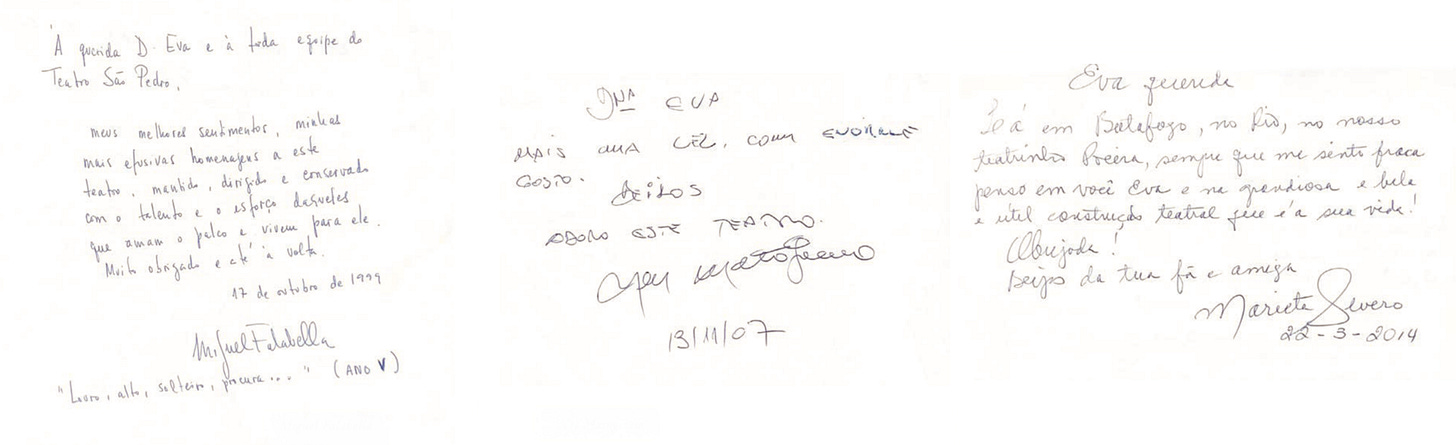 À querida D. Eva e à toda equipe do
Teatro São Pedro,
meus melhores sentimentos, minhas
mais efusivas homenagens a este
teatro, mantido, dirigido e conservado
com o talento e o esforço daqueles
que amam o palco e vivem para ele.
Muito obrigado e até a volta.
17 de outubro de 1999
Miguel Falabella
"Louro, alto, solteiro, procura..." (ANO V)
Dna EVA
MAIS UMA VEZ, COM ENORME
GOSTO.
BEIJOS
ADORO ESTE TEATRO.
Ney Matogrosso
13/11/07
Eva querida
Lá em Botafogo, no Rio, no nosso
teatrinho Poeira, sempre que me sinto fraca
penso em você Eva e na grandiosa e bela
e útil construção teatral que é a sua vida!
Obrigada!
Beijos da tua fã e amiga
Marieta Severo
22-3-2014